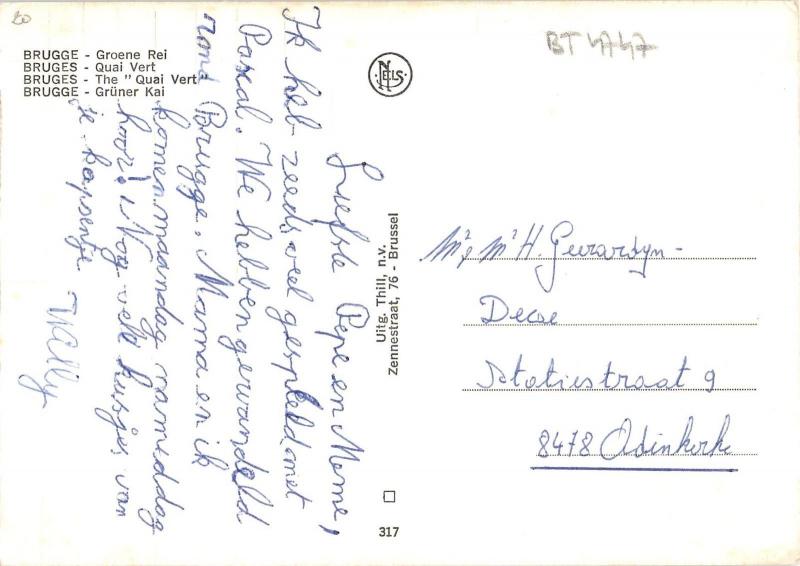 20
BRUGGE - Groene Rei
BRUGES - Quai Vert
BRUGES - The " Quai Vert
BRUGGE - Grüner Kai
NELS
BT 4747
Liefste Pepe en Meme,
Ik heb reeds veel gespeeld met
Pascal. We hebben gewandeld
rond Brugge. Mama en ik
komen maandag namiddag
hoor! Nog vele kusjes van
je kapoentje
Wally
Uitg. Thill, n.v.
Zennestraat, 76 - Brussel
317
Mr & Mr H. Gerardyn -
Decae
Statiestraat 9
8478 Adinkerke